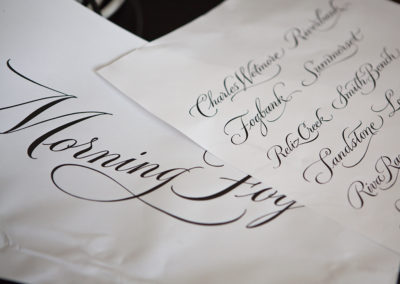 Morning Ivy
Charles Wetmore Riverbank
Fogbank Summerset
Reliz Creek Smith Bench
Sandstone
Riva